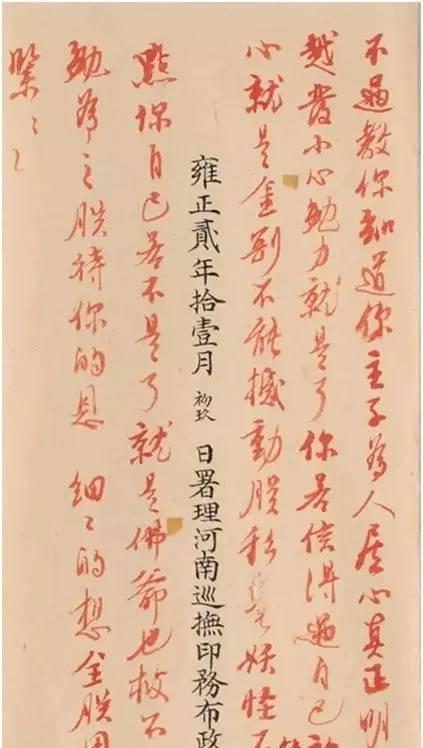 不過教你知道你主子為人居心真正明
越發小心勉力就是了你若信得過自己就
心就是金剛不能撼動朕私毫妖怪不
雍正貳年拾壹月初玖日署理河南巡撫印務布政
點你自己若不是了就是佛爺也救不
勉為之朕待你的恩細〻的想全朕用
緊〻